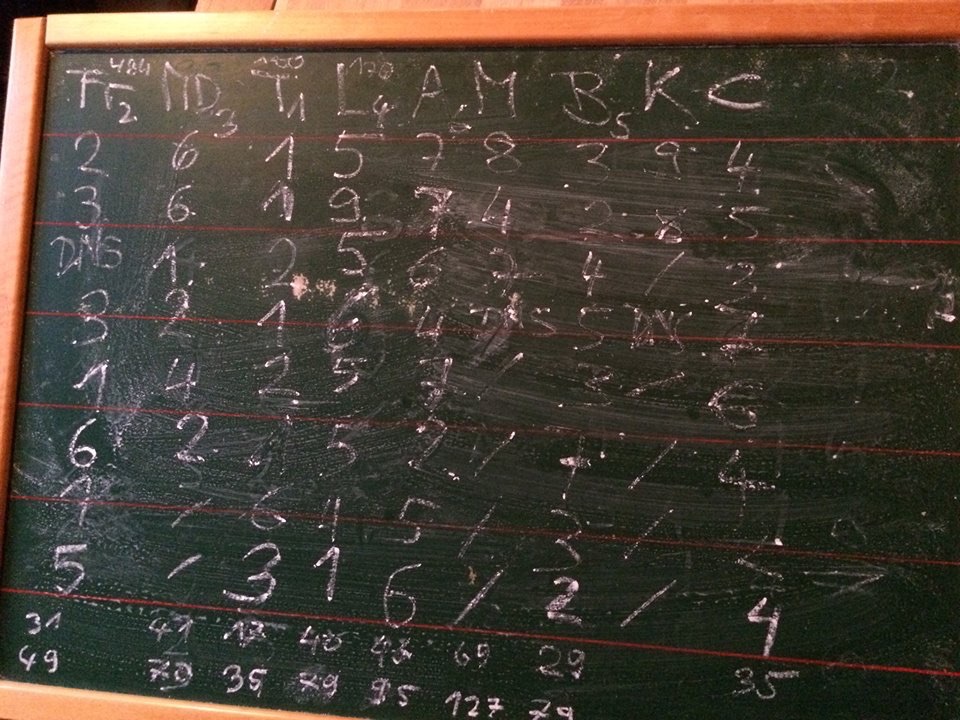 FF₂ 484 MD₃ T₁ L₄ 170 A M B₅ K C
2 6 1 5 7 8 3 9 4
3 6 1 9 7 4 2 8 5
DNS 1 2 5 6 3 4 / 3
3 2 1 6 4 DNS 5 DNS
1 4 2 5 3 / 3 / 6
6 2 1 5 2 / / 4
1 / 6 1 5 / 3 /
5 / 3 1 6 / 2 / 4
31 41 17 43 69 29
49 79 35 79 95 127 79 35